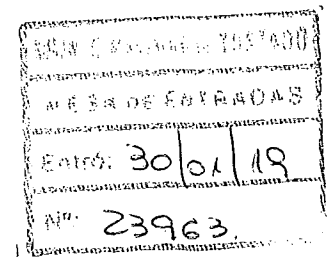 TOSTADO
MESA DE ENTRADAS
Entró: 30/01/19
Nº: 23963.